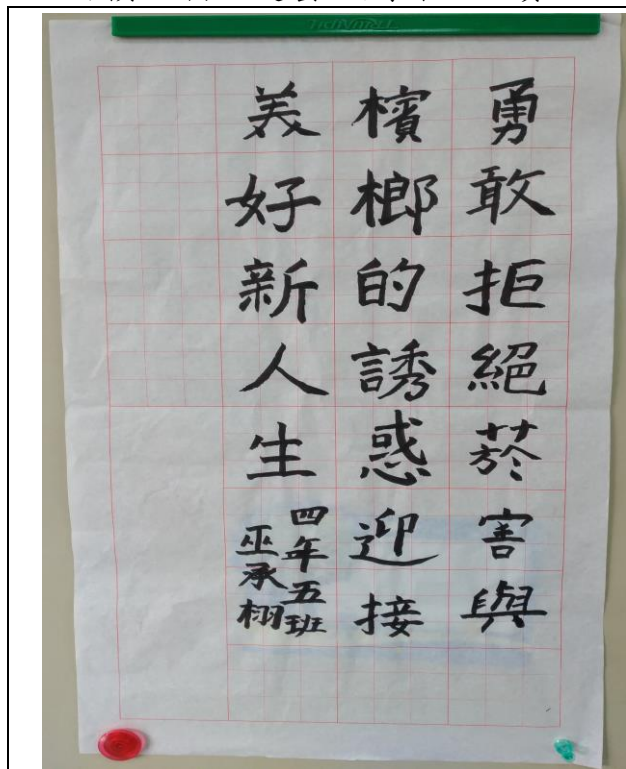 勇敢拒絕菸害與
檳榔的誘惑迎接
美好新人生
四年五班
巫承栩